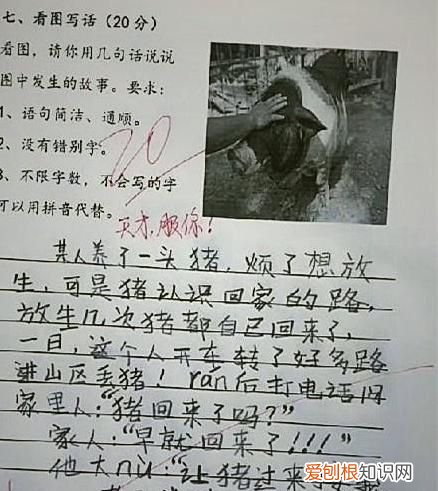 七、看图写话（20分）
看图，请你用几句话说说
图中发生的故事。要求：
1、语句简洁、通顺。
2、没有错别字。
3、不限字数，不会写的字
可以用拼音代替。
20
天才，服你！
某人养了一头猪，烦了想放
生，可是猪认识回家的路，
放生几次猪都自已回来了，
一日，这个人开车转了好多路
进山区丢猪！rán后打电话问
家里人：“猪回来了吗？”
家人：“早就回来了！！！”
他大nù：“让猪过来
爱刨根知识网
www.baogen.com